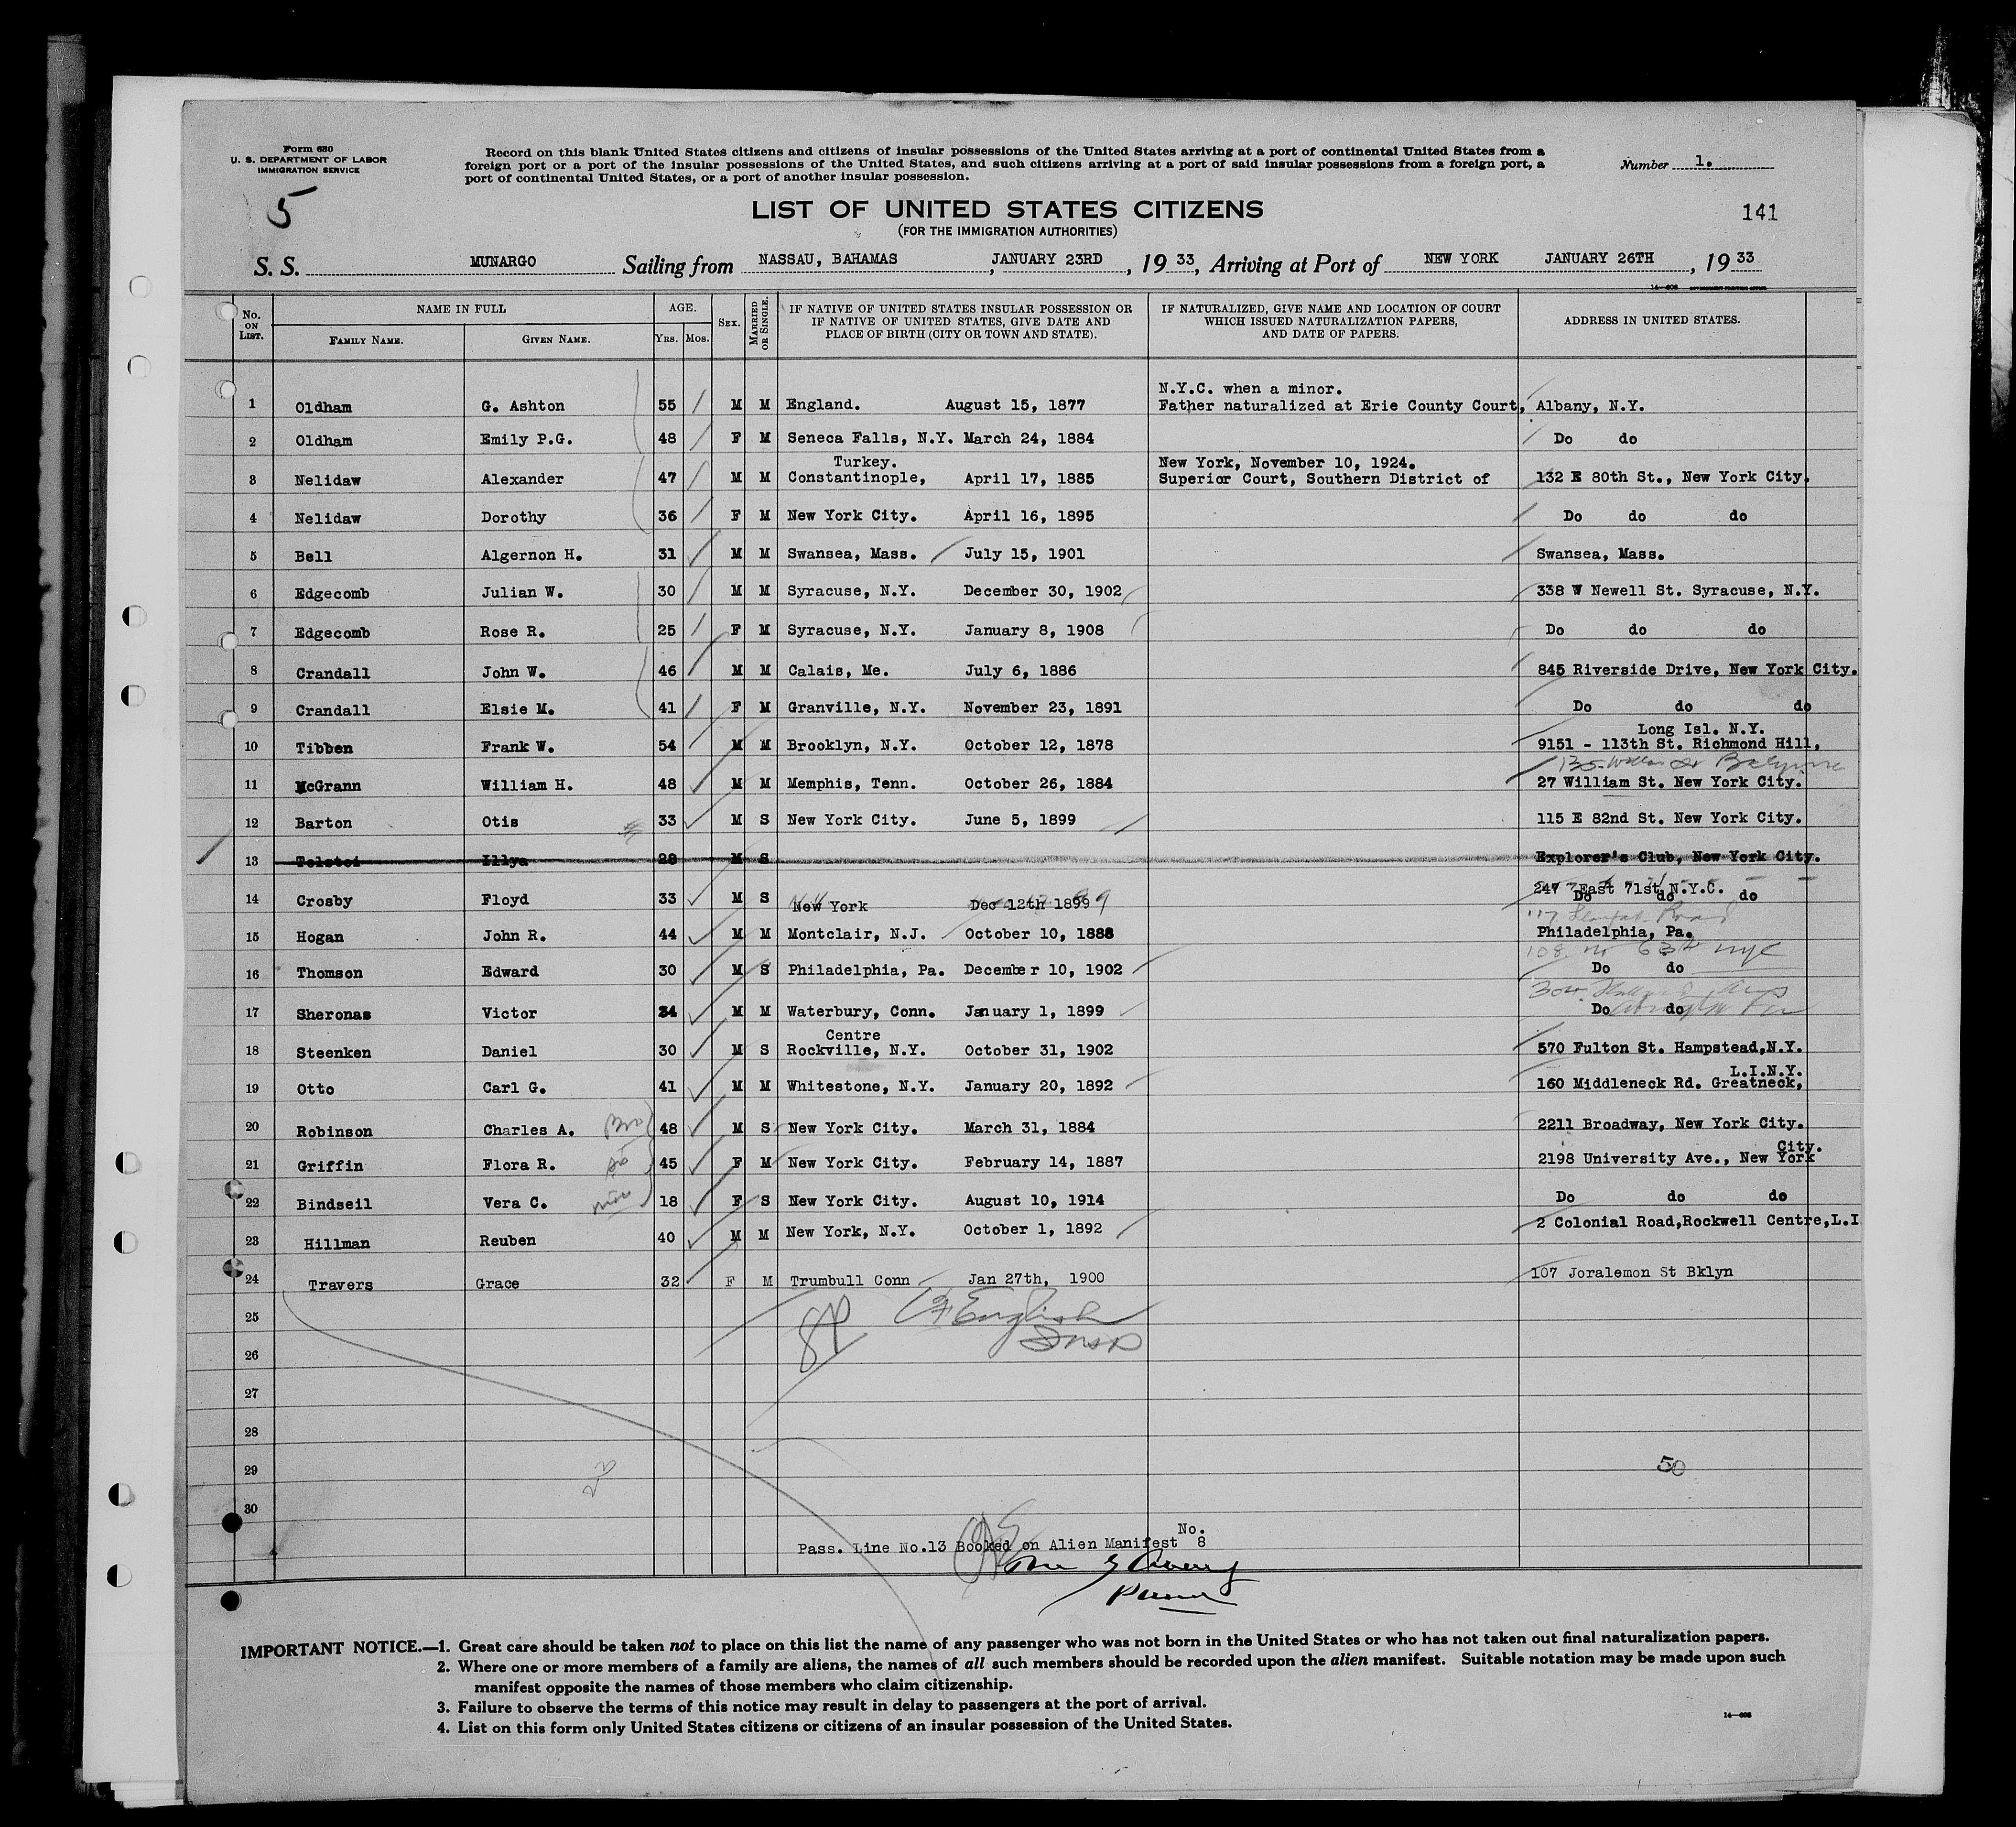 Form 630
U. S. DEPARTMENT OF LABOR
IMMIGRATION SERVICE
5
Record on this blank United States citizens and citizens of insular possessions of the United States arriving at a port of continental United States from a
foreign port or a port of the insular possessions of the United States, and such citizens arriving at a port of said insular possessions from a foreign port, a
port of continental United States, or a port of another insular possession.
Number 1.
LIST OF UNITED STATES CITIZENS
(FOR THE IMMIGRATION AUTHORITIES)
141
S. S. MUNARGO Sailing from NASSAU, BAHAMAS, JANUARY 23RD, 19 33, Arriving at Port of NEW YORK JANUARY 26TH, 19 33
No. ON LIST. NAME IN FULL FAMILY NAME. GIVEN NAME. AGE. YRS. MOS. SEX. MARRIED OR SINGLE.
IF NATIVE OF UNITED STATES INSULAR POSSESSION OR
IF NATIVE OF UNITED STATES, GIVE DATE AND
PLACE OF BIRTH (CITY OR TOWN AND STATE).
IF NATURALIZED, GIVE NAME AND LOCATION OF COURT
WHICH ISSUED NATURALIZATION PAPERS,
AND DATE OF PAPERS.
ADDRESS IN UNITED STATES.
N.Y.C. when a minor.
1 Oldham G. Ashton 55 M M England. August 15, 1877 Father naturalized at Erie County Court, Albany, N.Y.
2 Oldham Emily P.G. 48 F M Seneca Falls, N.Y. March 24, 1884 Do do
Turkey. New York, November 10, 1924.
3 Nelidaw Alexander 47 M M Constantinople, April 17, 1885 Superior Court, Southern District of 132 E 80th St., New York City.
4 Nelidaw Dorothy 36 F M New York City. April 16, 1895 Do do do
5 Bell Algernon H. 31 M M Swansea, Mass. July 15, 1901 Swansea, Mass.
6 Edgecomb Julian W. 30 M M Syracuse, N.Y. December 30, 1902 338 W Newell St. Syracuse, N.Y.
7 Edgecomb Rose R. 25 F M Syracuse, N.Y. January 8, 1908 Do do do
8 Crandall John W. 46 M M Calais, Me. July 6, 1886 845 Riverside Drive, New York City.
9 Crandall Elsie M. 41 F M Granville, N.Y. November 23, 1891 Do do do
Long Isl. N.Y.
10 Tibben Frank W. 54 M M Brooklyn, N.Y. October 12, 1878 9151 - 113th St. Richmond Hill,
11 McGrann William H. 48 M M Memphis, Tenn. October 26, 1884 27 William St. New York City.
12 Barton Otis 33 M S New York City. June 5, 1899 115 E 82nd St. New York City.
13 Tolstoi Illya 28 M S Explorer's Club, New York City.
247 East 71st N.Y.C.
14 Crosby Floyd 33 M S New York Dec 12th 1899 Do do do
15 Hogan John R. 44 M M Montclair, N.J. October 10, 1888 Philadelphia, Pa.
108 63rd nyc
16 Thomson Edward 30 M S Philadelphia, Pa. December 10, 1902 Do do
17 Sheronas Victor 34 M M Waterbury, Conn. January 1, 1899 Do do
Centre
18 Steenken Daniel 30 M S Rockville, N.Y. October 31, 1902 570 Fulton St. Hampstead,N.Y.
L.I.N.Y.
19 Otto Carl G. 41 M M Whitestone, N.Y. January 20, 1892 160 Middleneck Rd. Greatneck,
20 Robinson Charles A. Bro 48 M S New York City. March 31, 1884 2211 Broadway, New York City.
City.
21 Griffin Flora R. sis 45 F M New York City. February 14, 1887 2198 University Ave., New York
22 Bindseil Vera C. niece 18 F S New York City. August 10, 1914 Do do do
23 Hillman Reuben 40 M M New York, N.Y. October 1, 1892 2 Colonial Road,Rockwell Centre,L.I
24 Travers Grace 32 F M Trumbull Conn Jan 27th, 1900 107 Joralemon St Bklyn
25 English
Insp
26
27
28
29 23 50
30
No.
Pass. Line No.13 Booked on Alien Manifest 8
Purser
IMPORTANT NOTICE.—1. Great care should be taken not to place on this list the name of any passenger who was not born in the United States or who has not taken out final naturalization papers.
2. Where one or more members of a family are aliens, the names of all such members should be recorded upon the alien manifest. Suitable notation may be made upon such
manifest opposite the names of those members who claim citizenship.
3. Failure to observe the terms of this notice may result in delay to passengers at the port of arrival.
4. List on this form only United States citizens or citizens of an insular possession of the United States.